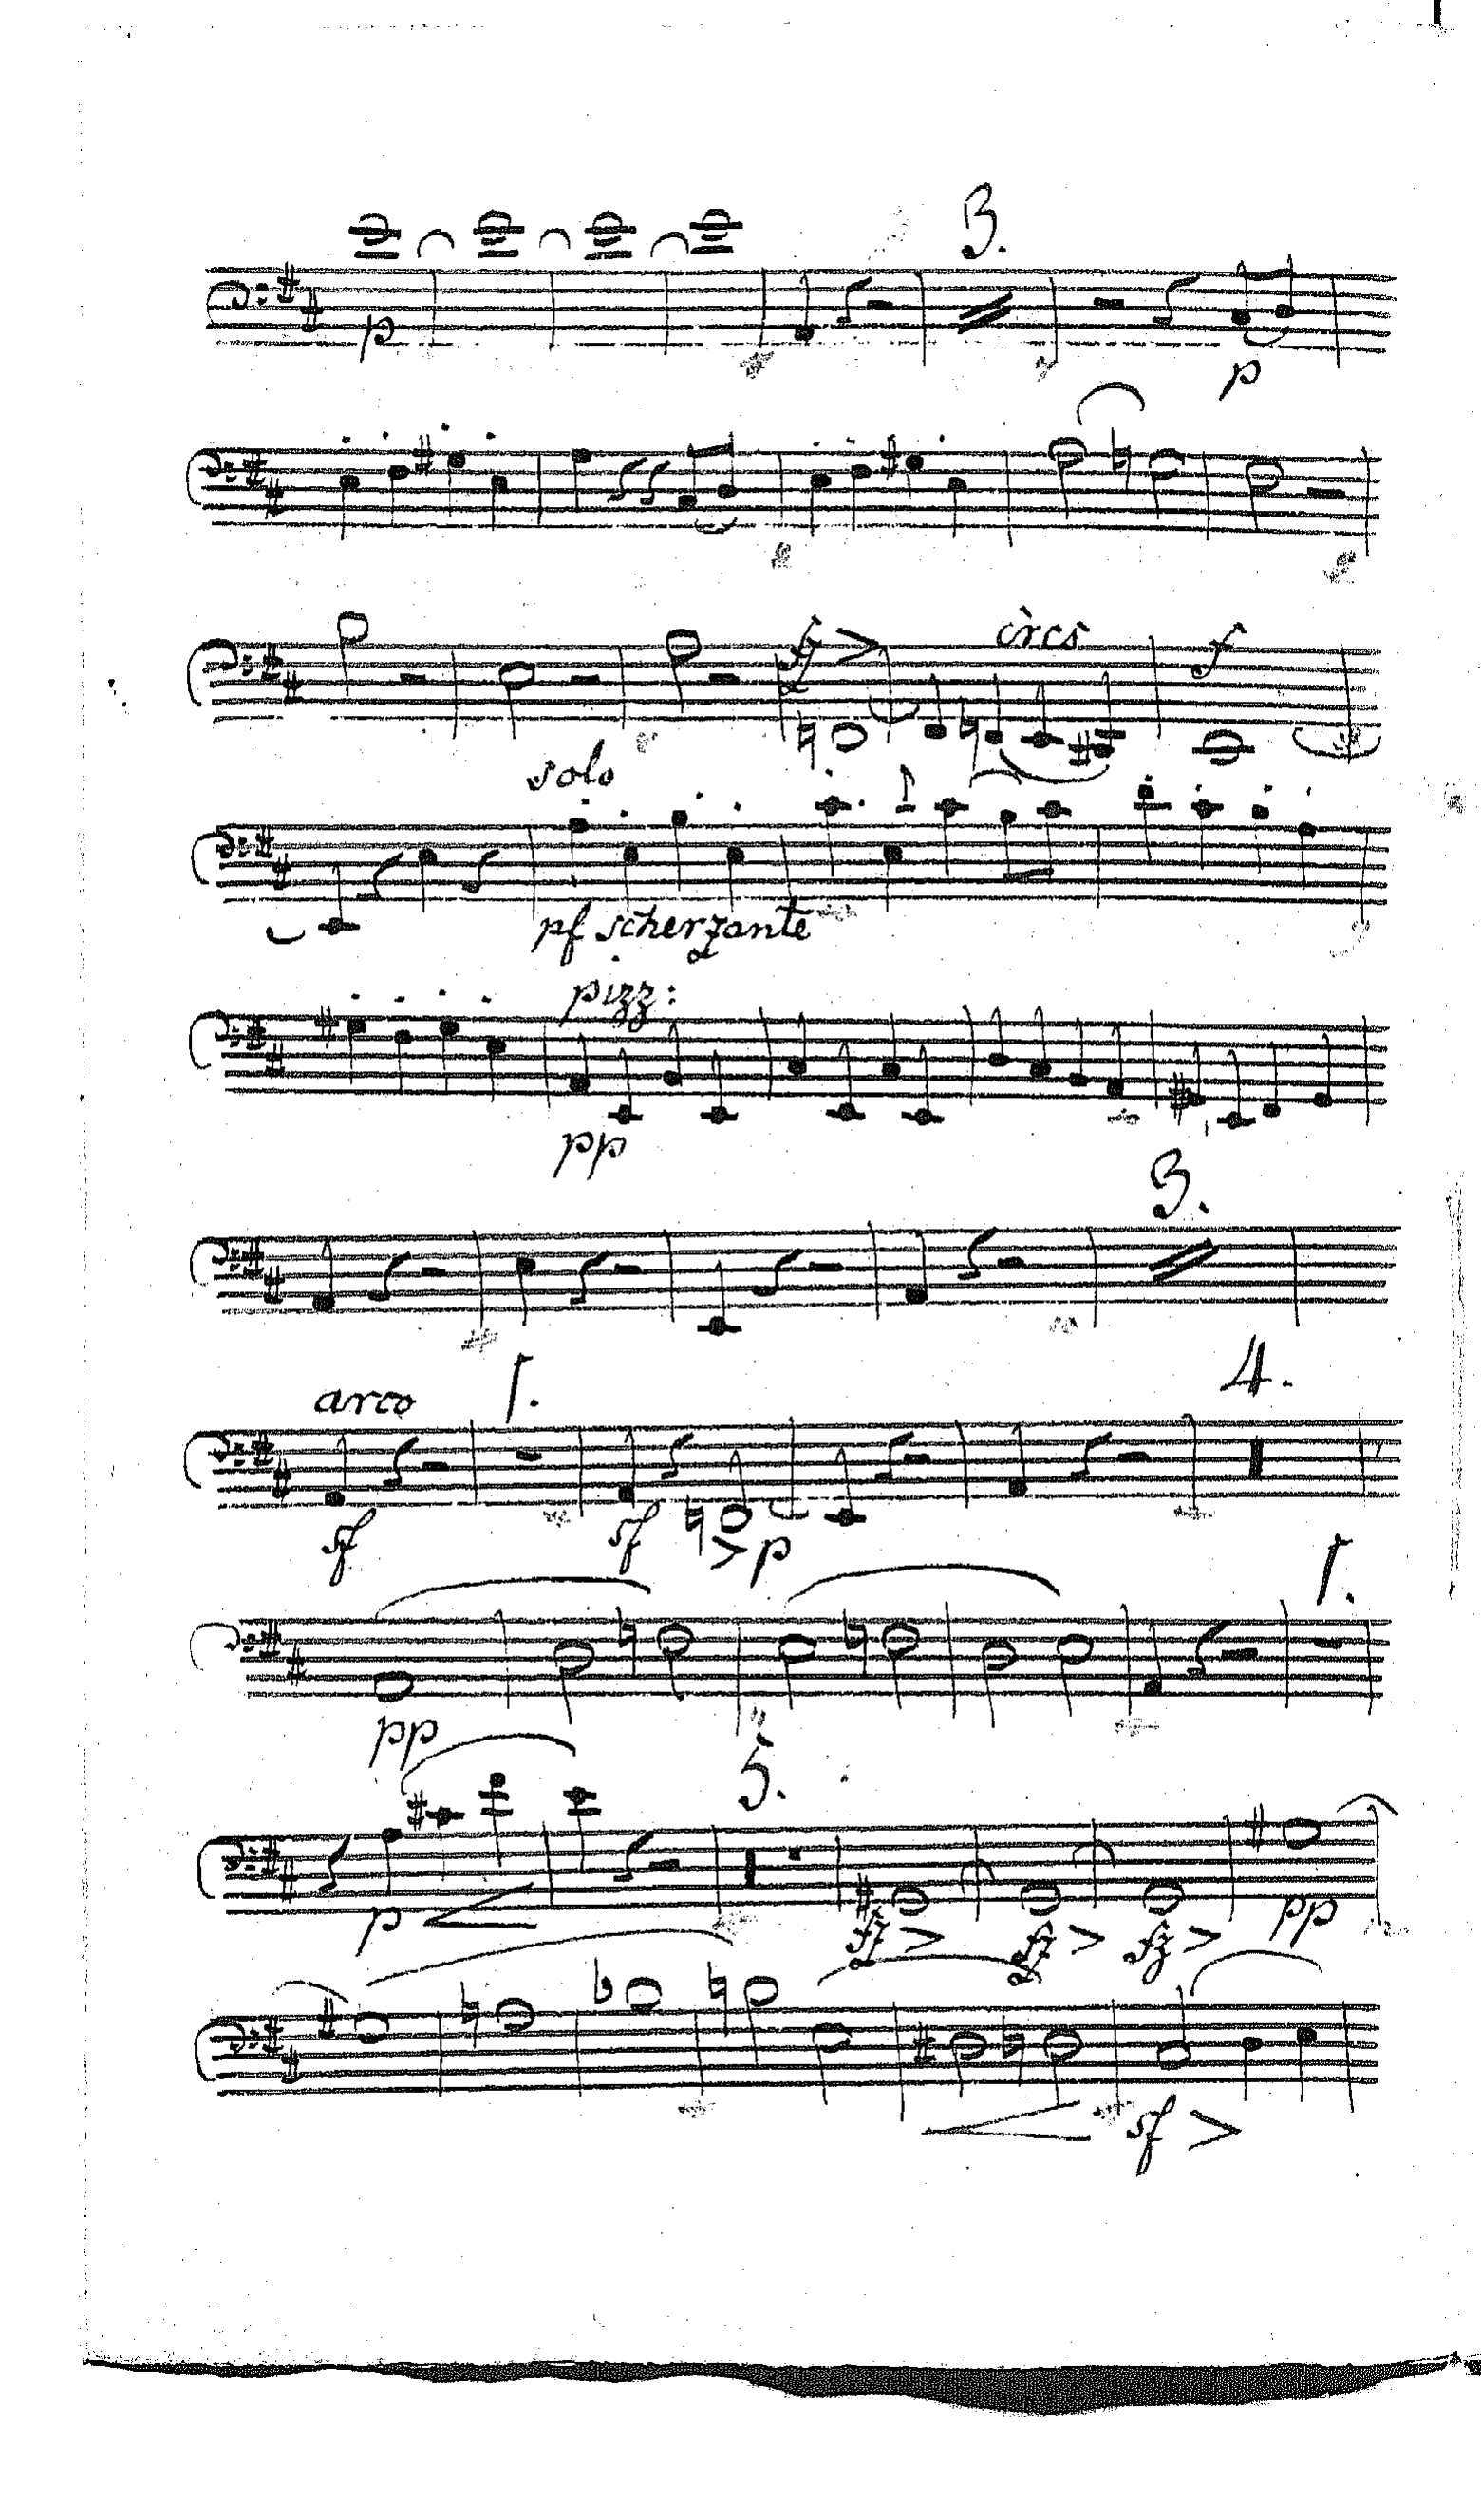 3.
p
p
fz > cresc f
solo
pf scherzante
pizz:
pp
3.
arco 1. 4.
sf sf > p
1.
pp
5.
p fz > fz > fz > pp
sf >